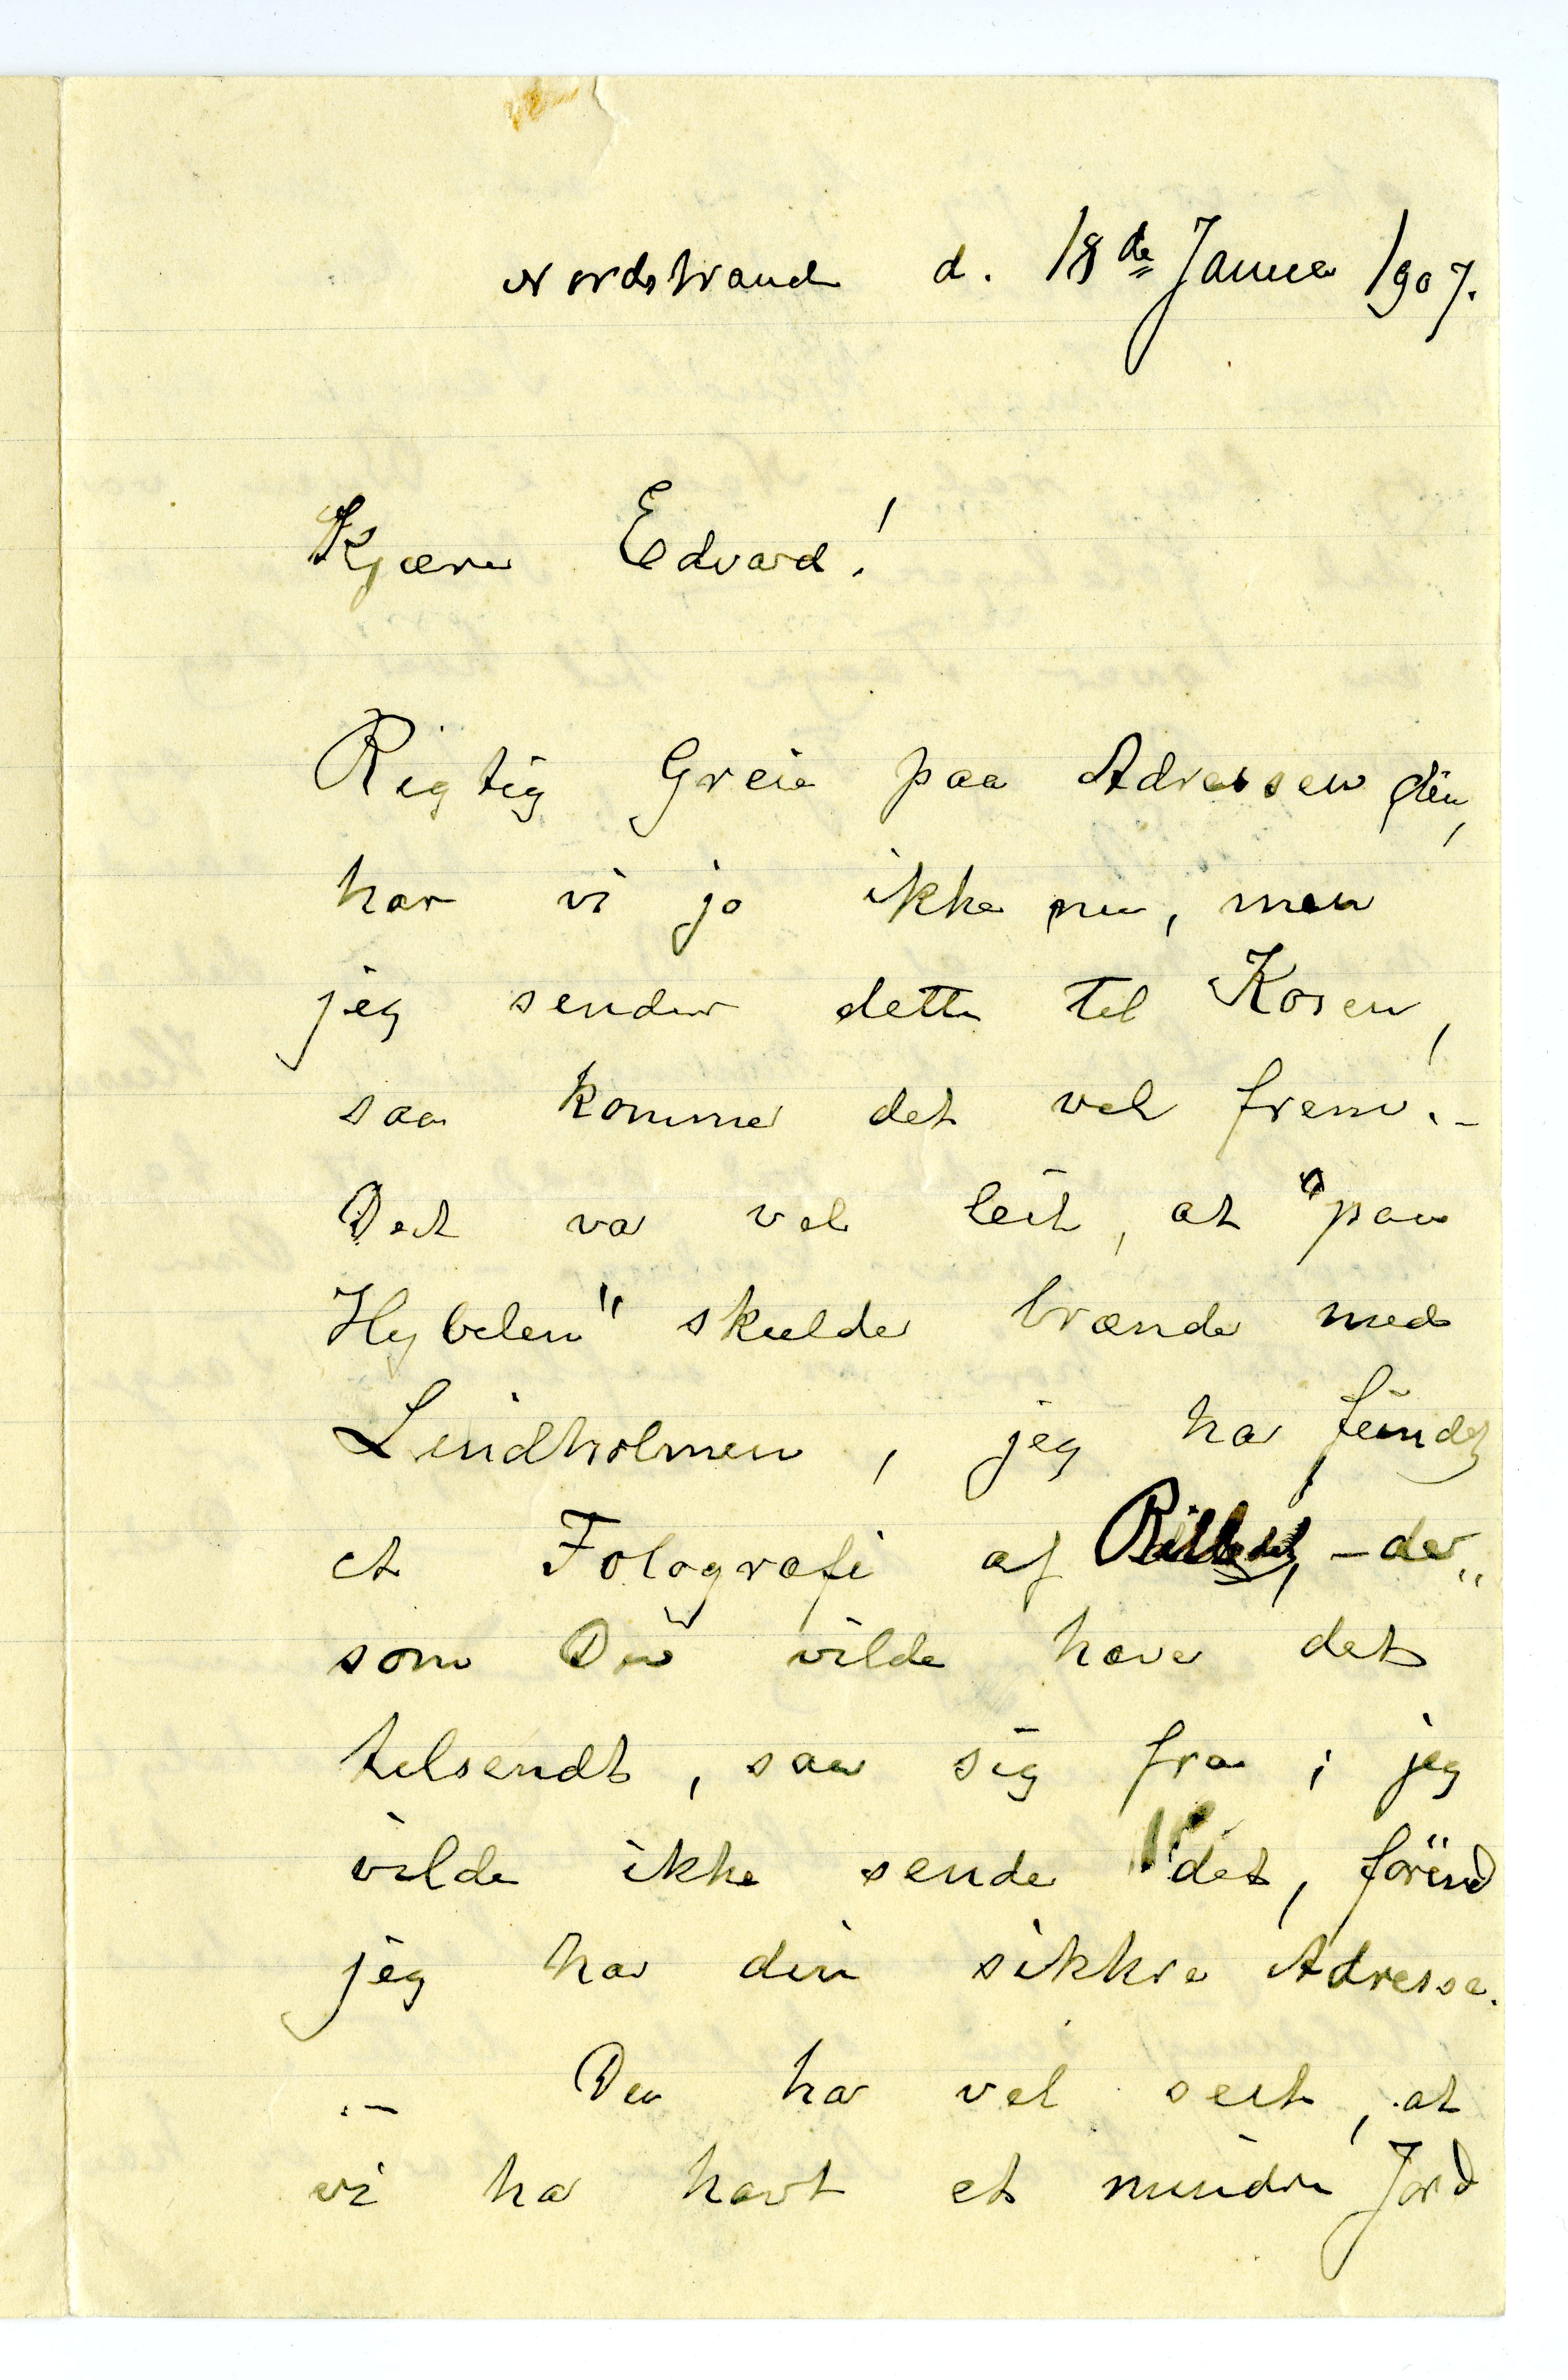 Nordstrand d. 18de Januar 1907.
Kjære Edvard!
Rigtig Greie paa Adressen din,
har vi jo ikke nu, men
jeg sender dette til Kosen,
saa kommer det vel frem. –
Det var vel leit, at "paa
Hybelen" skulde brænde med
Lindholmen, jeg har fundet
et Fotografi af Billedet, – der
som Du vilde have det
tilsendt, saa sig fra; jeg
vilde ikke sende det, förend
jeg har din sikkre Adresse.
– Du har vel seet, at
vi har havt et mindre Jord